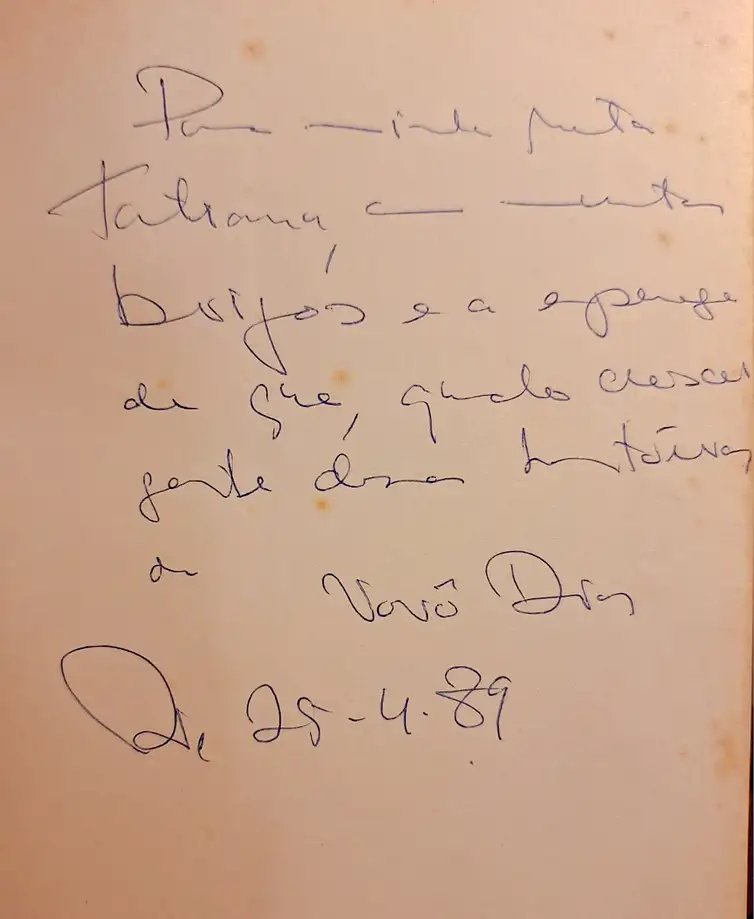 Para minha neta
Tatiana, com muitos
beijos e a esperança
de que, quando crescer
goste dessas histórias
do Vovô Dias
25-4-89